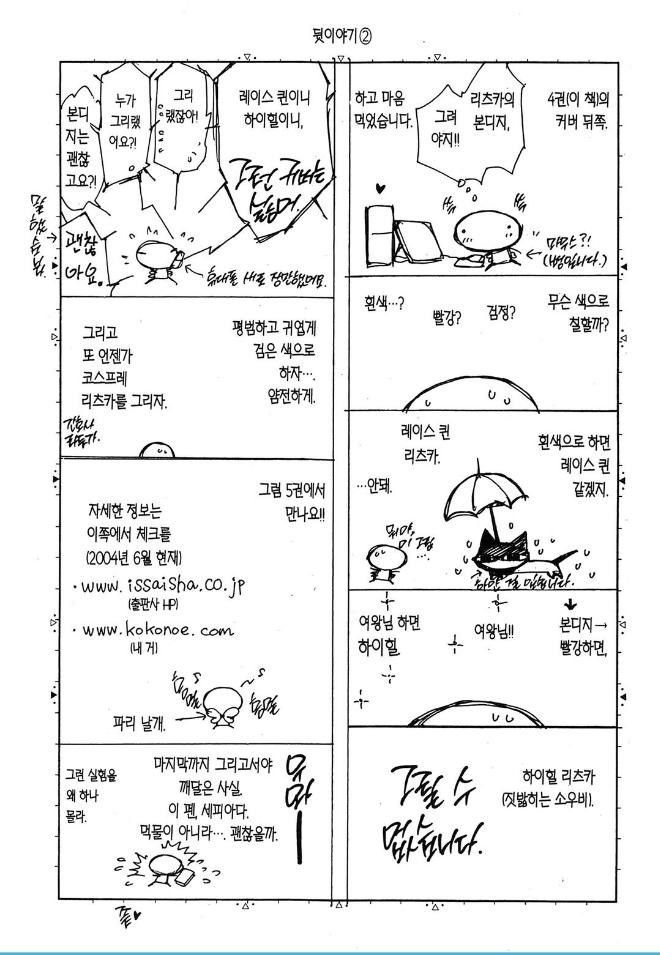 뒷이야기②
4권(이 책)의
커버 뒤쪽.
리츠카의
본디지,
그려
야지!!
하고 마음
먹었습니다.
무슨 색으로
칠할까?
검정?
빨강?
흰색…?
흰색으로 하면
레이스 퀸
같겠지.
레이스 퀸
리츠카.
…안돼.
뭐야,
이 그림
…
본디지→
빨강하면,
여왕님!!
여왕님 하면
하이힐.
하이힐 리츠카
(짓밟히는 소우비).
그릴 수
없습니다.
레이스 퀸이니
하이힐이니,
그런 커버는
싫어
그리
랬잖아!
누가
그리랬
어요?!
본디
지는
괜찮
고요?!
괜찮
아요.
휴대폰 새로 장만했어요.
평범하고 귀엽게
검은 색으로
하자….
얌전하게.
그리고
또 언젠가
코스프레
리츠카를 그리자.
간호사
라든가.
그럼 5권에서
만나요!!
자세한 정보는
이쪽에서 체크를
(2004년 6월 현재)
·www.issaisha.co.jp
(출판사 HP)
·www.kokonoe.com
(내 거)
파리 날개.
마지막까지 그리고서야
깨달은 사실.
이 펜, 세피아다.
먹물이 아니라…. 괜찮을까.
그런 실험을
왜 하나
몰라.